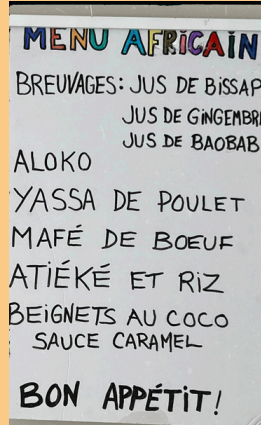 MENU AFRICAIN
BREUVAGES: JUS DE BISSAP
JUS DE GINGEMBRE
JUS DE BAOBAB
ALOKO
YASSA DE POULET
MAFÉ DE BOEUF
ATIÉKÉ ET RIZ
BEIGNETS AU COCO
SAUCE CARAMEL
BON APPÉTIT!